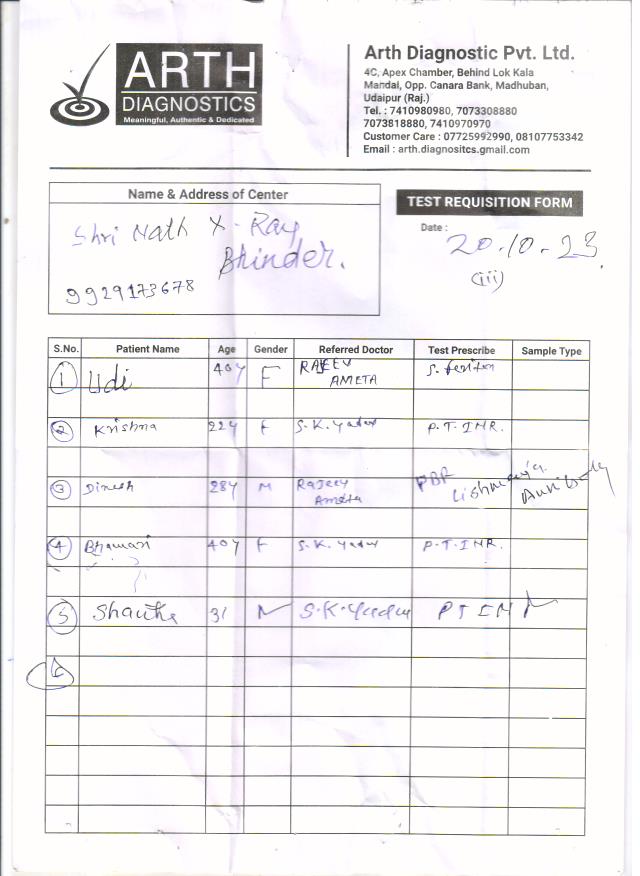 ARTH
DIAGNOSTICS
Meaningful, Authentic & Dedicated
Arth Diagnostic Pvt. Ltd.
4C, Apex Chamber, Behind Lok Kala
Mandal, Opp. Canara Bank, Madhuban,
Udaipur (Raj.)
Tel. : 7410980980, 7073308880
7073818880, 7410970970
Customer Care : 07725992990, 08107753342
Email : arth.diagnositcs.gmail.com
Name & Address of Center
Shri Nath X-Ray
Bhinder.
9929173678
TEST REQUISITION FORM
Date : 20.10.23
(iii)
S.No. Patient Name Age Gender Referred Doctor Test Prescribe Sample Type
1 Udi 40y F RAJEEV AMETA S.
2 Krishna 22y F S.K.Yadav P.T.INR.
3 Dinesh 28y M Rajeev Ameta PBF
4 Bhawari 40y F S.K.Yadav P.T-INR.
5 31 S.K.Yadav PTIN
6